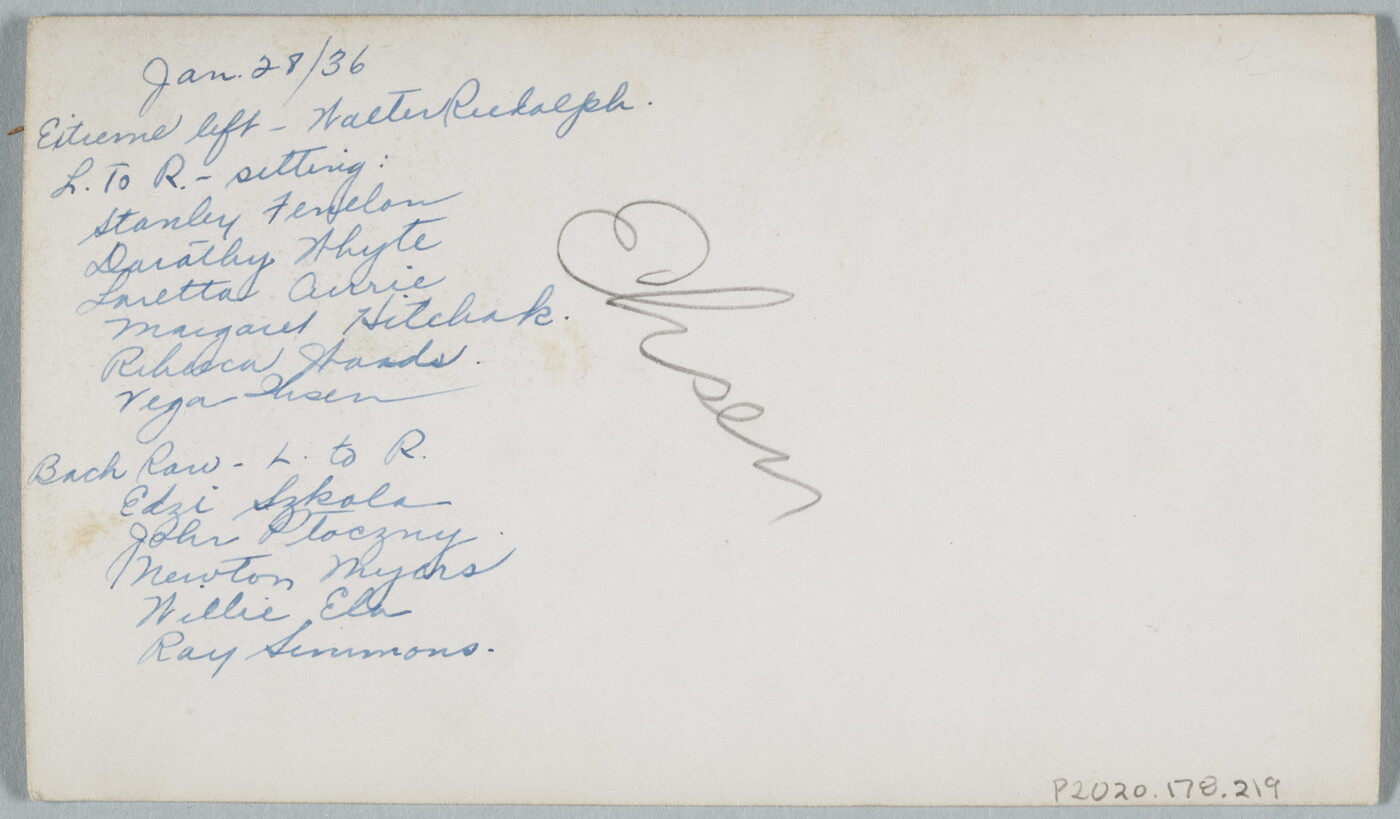 Jan. 28/36
Extreme left - Walter Rudolph.
L. To R. - sitting:
Stanley Fenelon
Dorothy Whyte
Loretta Currie
Margaret Hitchak.
Rebecca Woods.
Vega
Back Row - L. to R.
Edzi Szkola
John Ptoczny.
Newton Myars
Willie Ela
Ray Simmons.
P2020.178.219